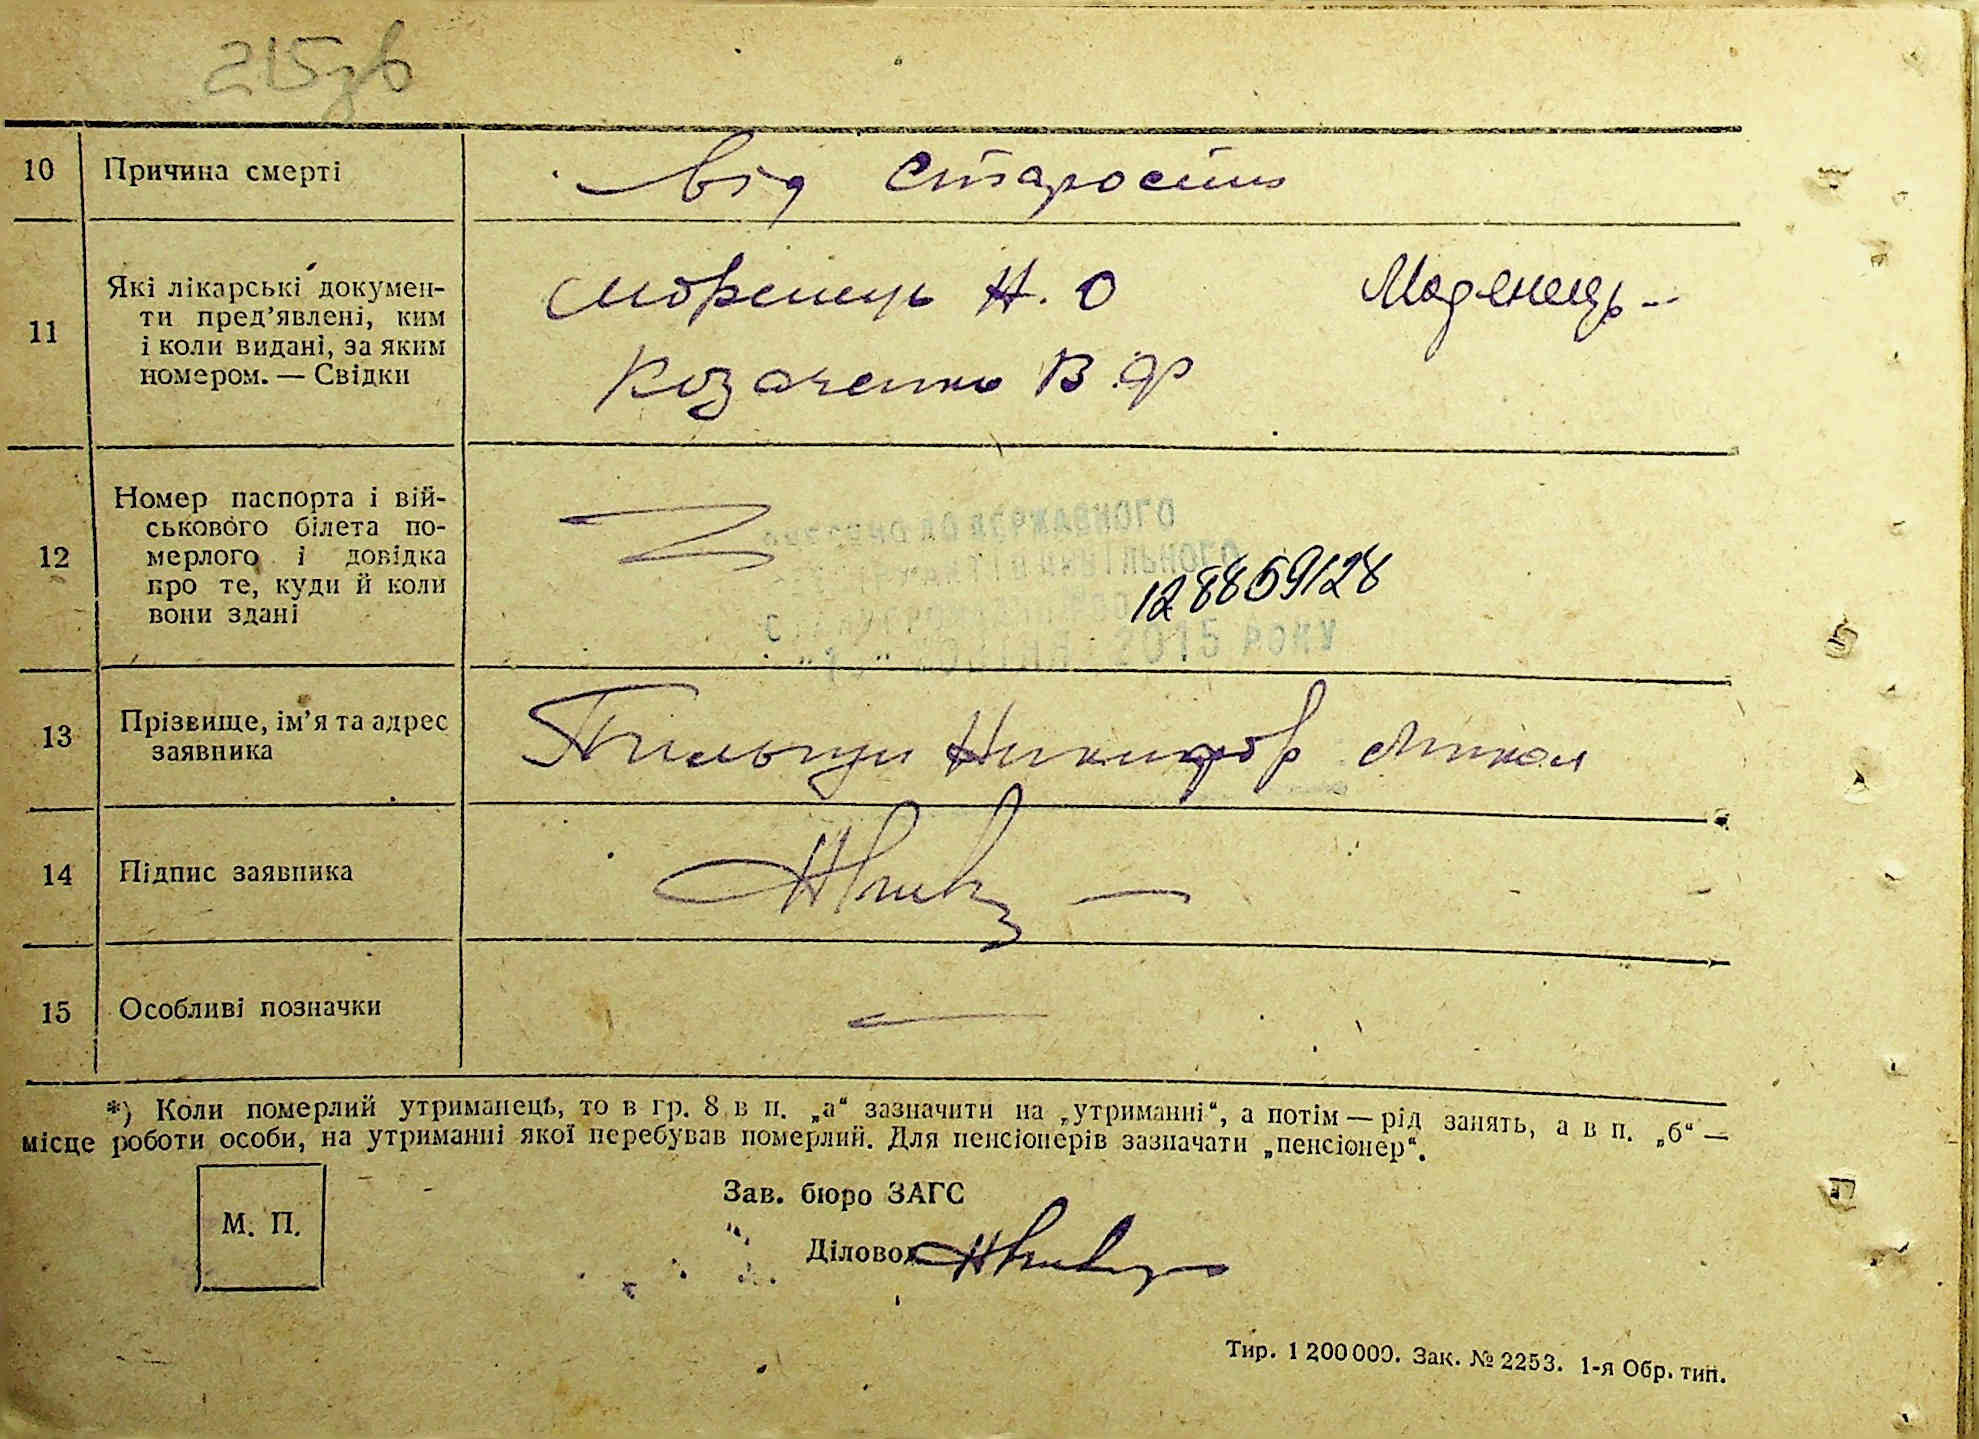 215зв
10 Причина смерті від старости
11 Які лікарські докумен-
ти пред’явлені, ким
і коли видані, за яким
номером. — Свідки
Моренець Н. О
Козаченко В. Ф
12 Номер паспорта і вій-
ськового білета по-
мерлого і довідка
про те, куди й коли
вони здані
ВНЕСЕНО ДО ДЕРЖАВНОГО
АКТІВ ЦИВІЛЬНОГО
128859128
2015 РОКУ
13 Прізвище, ім’я та адрес
заявника
Никифор Микол
14 Підпис заявника
15 Особливі позначки
*) Коли померлий утриманець, то в гр. 8 в п. „а“ зазначити на „утриманні“, а потім — рід занять, а в п. „б“ —
місце роботи особи, на утриманні якої перебував померлий. Для пенсіонерів зазначати „пенсіонер“.
М. П.
Зав. бюро ЗАГС
Діловод
Тир. 1 200 000. Зак. № 2253. 1-я Обр. тип.